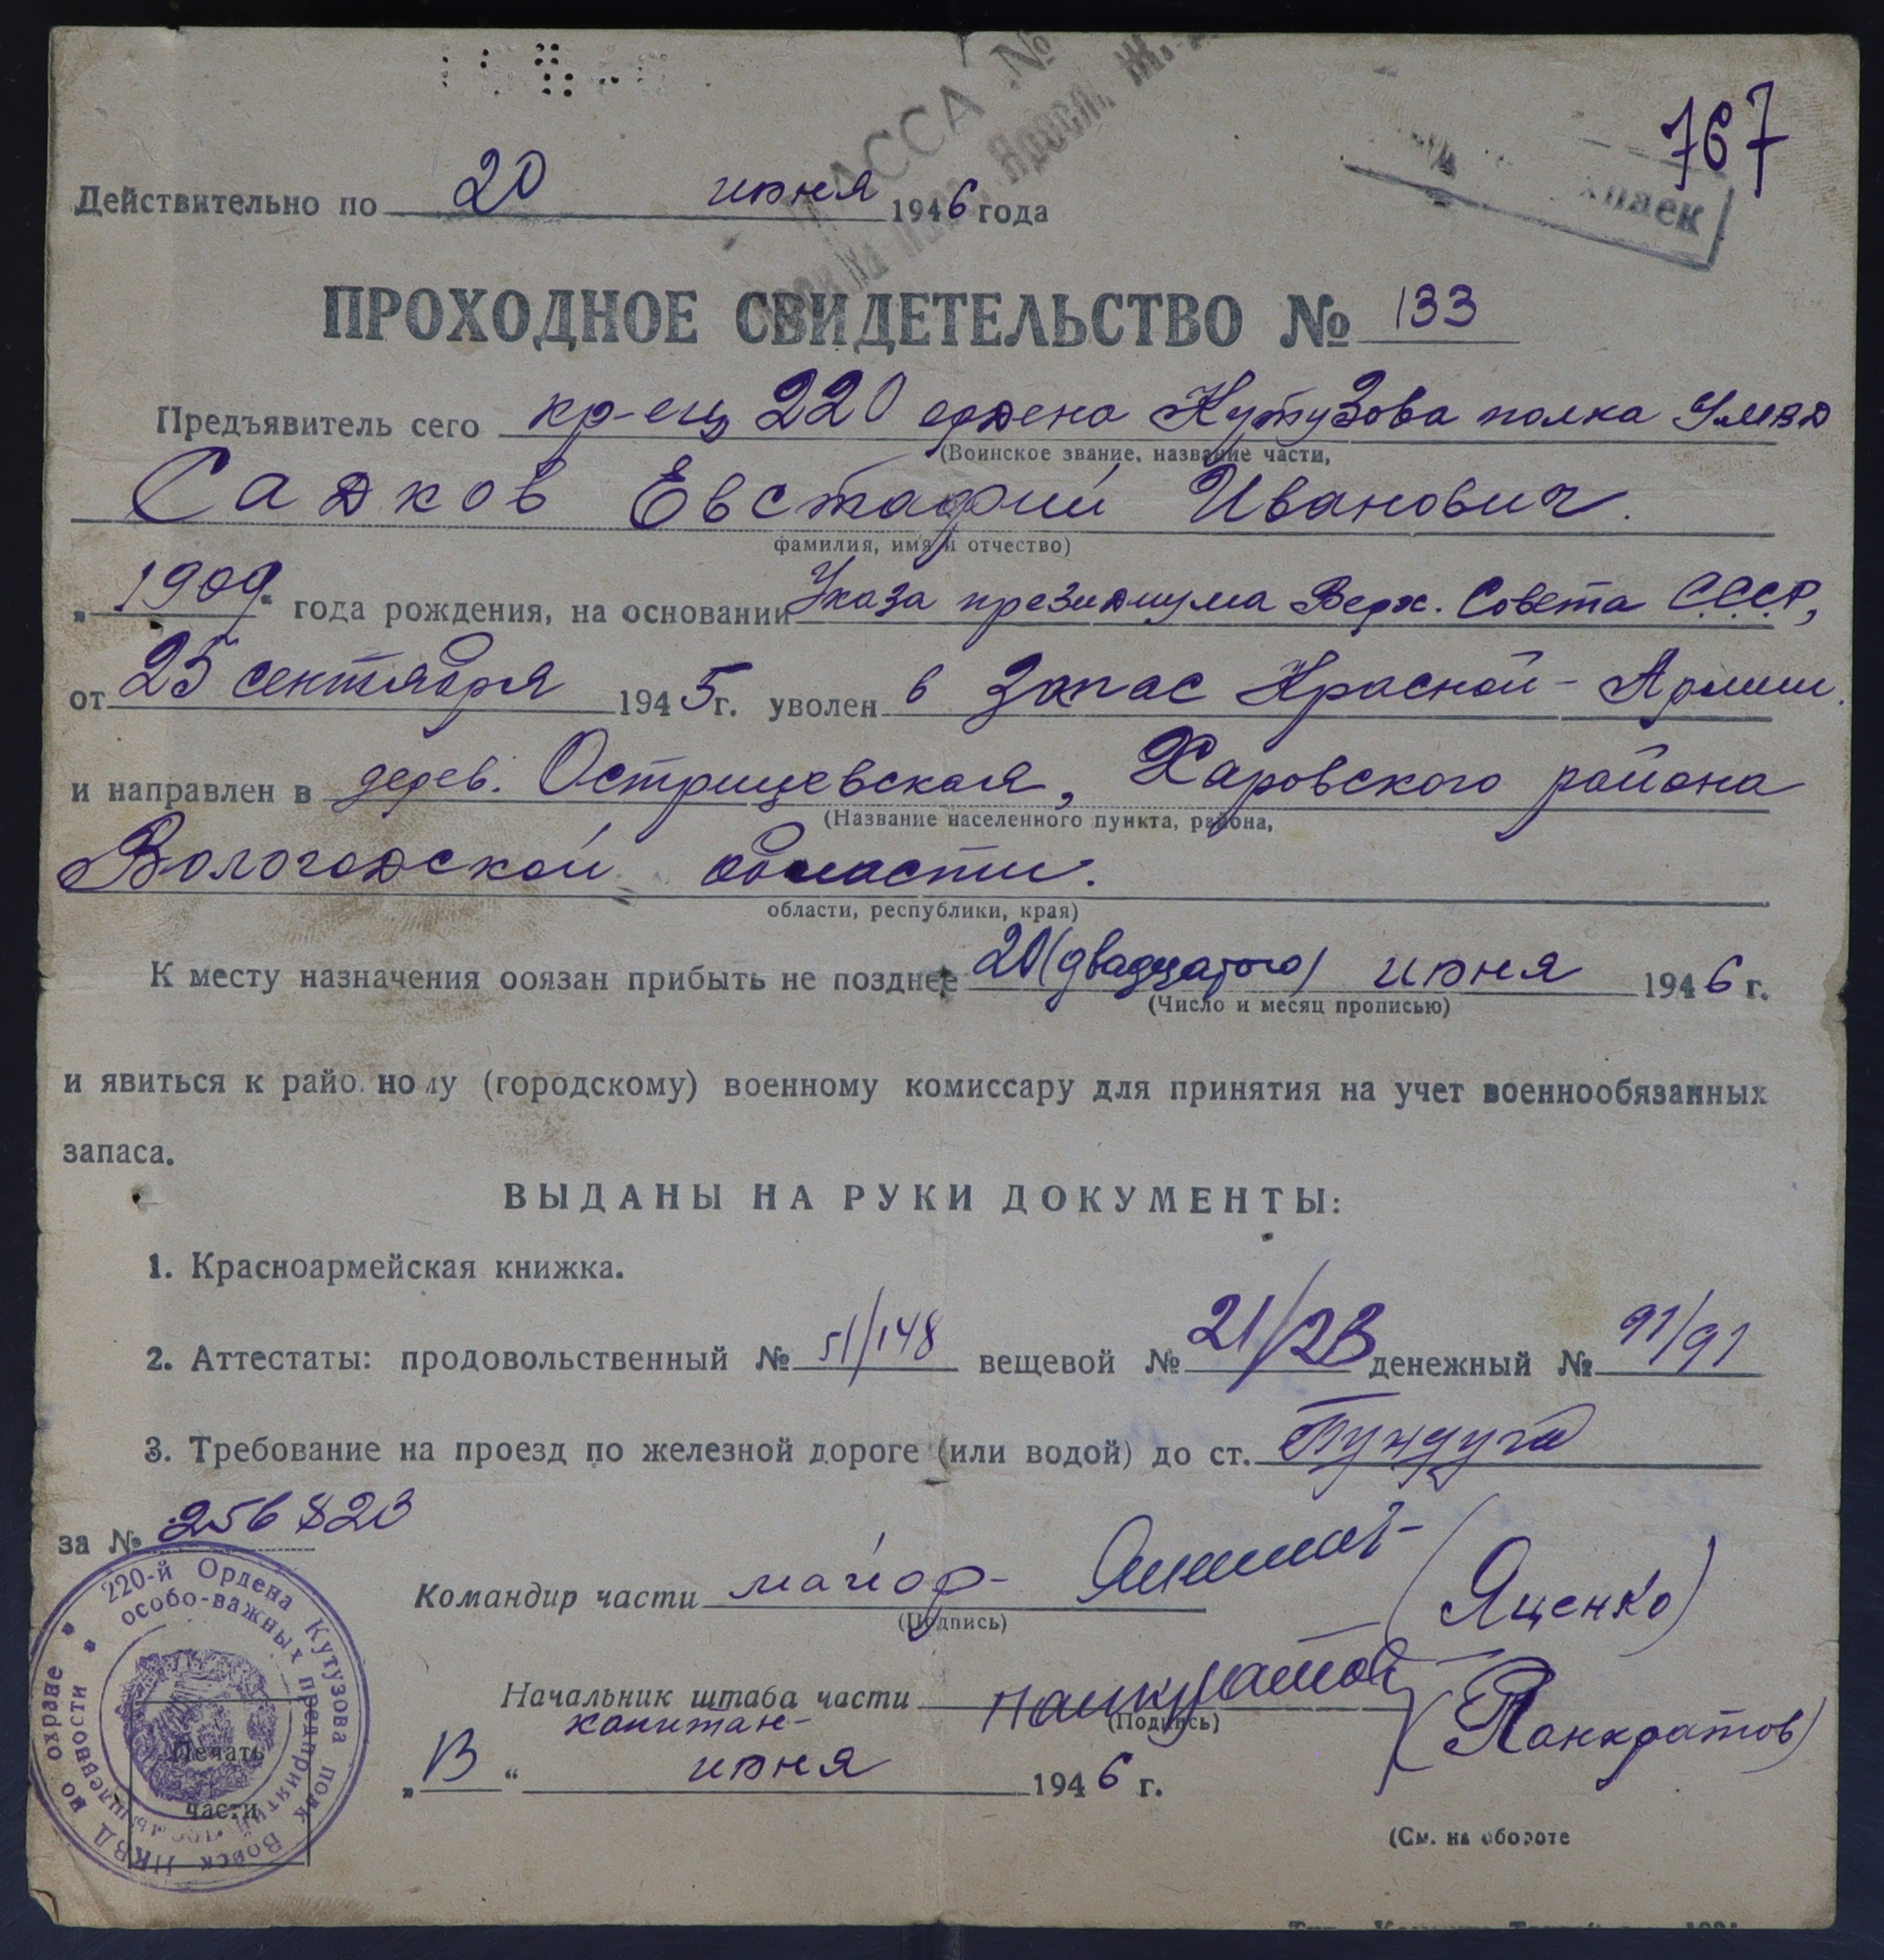 767
КАССА №
Действительно по 20 июня 1946 года
ПРОХОДНОЕ СВИДЕТЕЛЬСТВО № 133
Предъявитель сего кр-ец 220 ордена Кутузова полка УМВД
(Воинское звание, название части,
Садков Евстафий Иванович.
фамилия, имя и отчество)
„1909“ года рождения, на основании Указа президиума Верх. Совета С.С.С.Р,
от 25 сентября 1945 г. уволен в запас Красной - Армии.
и направлен в дерев. Острищевская, Харовского района
(Название населенного пункта, района,
Вологодской области.
области, республики, края)
К месту назначения обязан прибыть не позднее 20 (двадцатого) июня 1946 г.
(Число и месяц прописью)
и явиться к районному (городскому) военному комиссару для принятия на учет военнообязанных
запаса.
ВЫДАНЫ НА РУКИ ДОКУМЕНТЫ:
1. Красноармейская книжка.
2. Аттестаты: продовольственный № 51/148 вещевой № 21/23 денежный № 91/91
3. Требование на проезд по железной дороге (или водой) до ст. Пундуга
за № 256823
Командир части майор - (Яценко)
(Подпись)
Начальник штаба части Панкратов (Панкратов)
капитан - (Подпись)
„13“ июня 1946 г.
220-й Ордена Кутузова полк Войск НКВД по охране
особо-важных предприятий промышленности
Печать
части
(См. на обороте